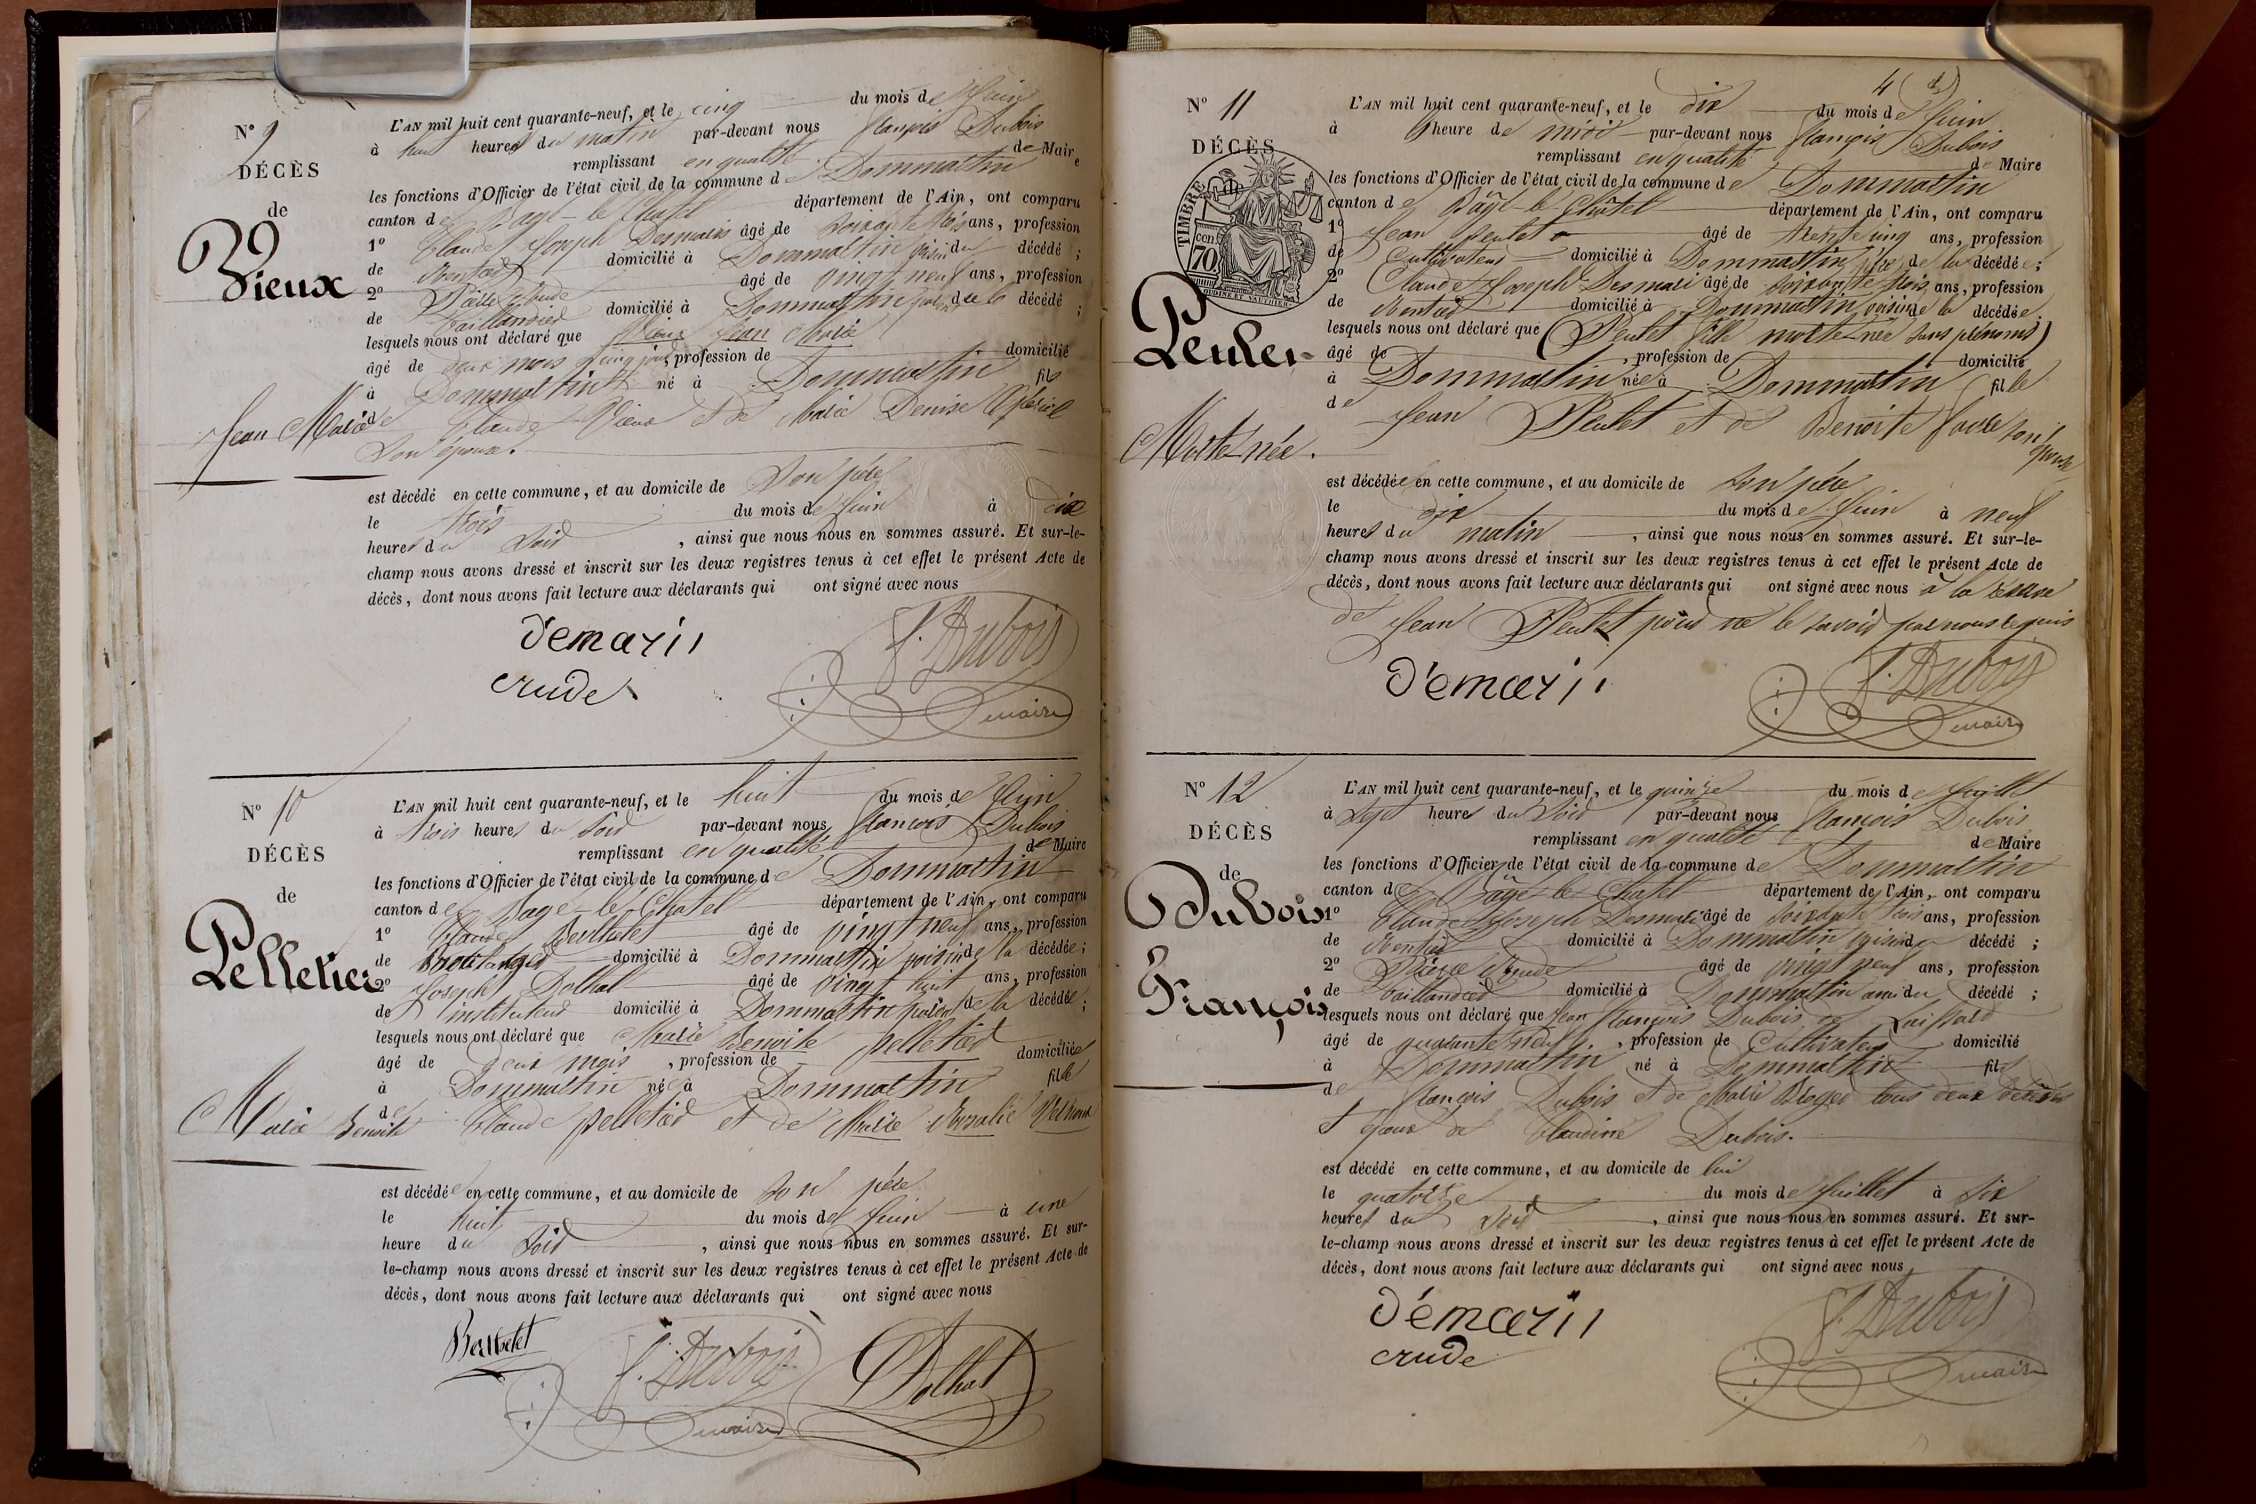 N° 9
DÉCÈS
de
Vieux
Jean Marie
L'AN mil huit cent quarante-neuf, et le cinq du mois de Juin
à huit heures du matin par-devant nous françois Dubois
remplissant en qualité de Maire
les fonctions d'Officier de l'état civil de la commune de Dommartin
canton de Bagé-le-Chatel département de l'Ain, ont comparu
1° Claude Joseph Desmaris âgé de soixante trois ans, profession
de Rentier domicilié à Dommartin voisin du décédé ;
2° Pierre Crude âgé de vingt neuf ans, profession
de taillandier domicilié à Dommartin décédé ;
lesquels nous ont déclaré que Vieux Jean Marie
âgé de deux mois cinq jours, profession de domicilié
à Dommartin né à Dommartin fils
de Claude Vieux et de Marie Denise
son épouse.
est décédé en cette commune, et au domicile de son père
le trois du mois de Juin à dix
heures du soir, ainsi que nous nous en sommes assuré. Et sur-le-
champ nous avons dressé et inscrit sur les deux registres tenus à cet effet le présent Acte de
décès, dont nous avons fait lecture aux déclarants qui ont signé avec nous
Démaris F. Dubois
crude maire
N° 10
DÉCÈS
de
Pelletier
Marie Benoite
L'AN mil huit cent quarante-neuf, et le huit du mois de Juin
à trois heures du soir par-devant nous françois Dubois
remplissant en qualité de Maire
les fonctions d'Officier de l'état civil de la commune de Dommartin
canton de Bagé-le-Chatel département de l'Ain, ont comparu
1° Claude Berthelet âgé de vingt neuf ans, profession
de Boulanger domicilié à Dommartin voisin de la décédée ;
2° Joseph Dolhat âgé de vingt huit ans, profession
de instituteur domicilié à Dommartin de la décédée ;
lesquels nous ont déclaré que Marie Benoite pelletier
âgé de deux mois, profession de domiciliée
à Dommartin née à Dommartin fille
de Claude pelletier et de Marie Rosalie
est décédée en cette commune, et au domicile de son père
le huit du mois de Juin à une
heure du soir, ainsi que nous nous en sommes assuré. Et sur-
le-champ nous avons dressé et inscrit sur les deux registres tenus à cet effet le présent Acte de
décès, dont nous avons fait lecture aux déclarants qui ont signé avec nous
Berthelet F. Dubois Dolhat
maire
4
N° 11
DÉCÈS
TIMBRE
cen. 70
Peulet
Morte-née.
L'AN mil huit cent quarante-neuf, et le dix du mois de Juin
à heure de midi par-devant nous françois Dubois
remplissant en qualité de Maire
les fonctions d'Officier de l'état civil de la commune de Dommartin
canton de Bâgé-le-Châtel département de l'Ain, ont comparu
1° Jean Peulet âgé de trente cinq ans, profession
de Cultivateur domicilié à Dommartin père de la décédée ;
2° Claude Joseph Desmari âgé de soixante trois ans, profession
de Rentier domicilié à Dommartin voisin de la décédée.
lesquels nous ont déclaré que (Peulet fille morte-née sans prénoms)
âgé de , profession de domicilié
à Dommartin née à Dommartin fille
de Jean Peulet et de Benoite son
épouse
est décédée en cette commune, et au domicile de son père
le dix du mois de Juin à neuf
heures du matin, ainsi que nous nous en sommes assuré. Et sur-le-
champ nous avons dressé et inscrit sur les deux registres tenus à cet effet le présent Acte de
décès, dont nous avons fait lecture aux déclarants qui ont signé avec nous à la
de Jean Peulet pour ne le savoir par nous requis
Démaris F. Dubois
maire
N° 12
DÉCÈS
de
Dubois
François
L'AN mil huit cent quarante-neuf, et le quinze du mois de Juillet
à sept heures du soir par-devant nous françois Dubois
remplissant en qualité de Maire
les fonctions d'Officier de l'état civil de la commune de Dommartin
canton de Bâgé-le-Chatel département de l'Ain, ont comparu
1° Claude Joseph Desmari âgé de soixante trois ans, profession
de Rentier domicilié à Dommartin voisin du décédé ;
2° Pierre Crude âgé de vingt neuf ans, profession
de taillandier domicilié à Dommartin ami du décédé ;
lesquels nous ont déclaré que Jean françois Dubois
âgé de quarante neuf, profession de Cultivateur domicilié
à Dommartin né à Dommartin fils
de françois Dubois et de Marie tous deux décédés
époux de Claudine Dubois.
est décédé en cette commune, et au domicile de lui
le quatorze du mois de Juillet à six
heures du soir, ainsi que nous nous en sommes assuré. Et sur-
le-champ nous avons dressé et inscrit sur les deux registres tenus à cet effet le présent Acte de
décès, dont nous avons fait lecture aux déclarants qui ont signé avec nous
Démaris F. Dubois
crude maire